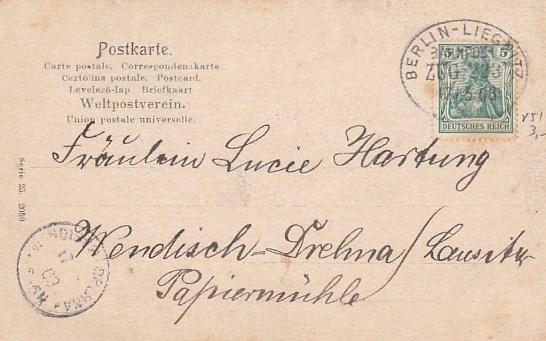 Postkarte.
Carte postale. Correspondenzkarte
Cartolina postale. Postcard.
Levelező-lap Briefkaart
Weltpostverein.
Union postale universelle.
BERLIN-LIEGNITZ
BAHNPOST
ZUG
5
5
DEUTSCHES REICH
Fräulein Lucie Hartung
Wendisch-Drehna / Lausitz
Papiermühle
Serie 25. 2059